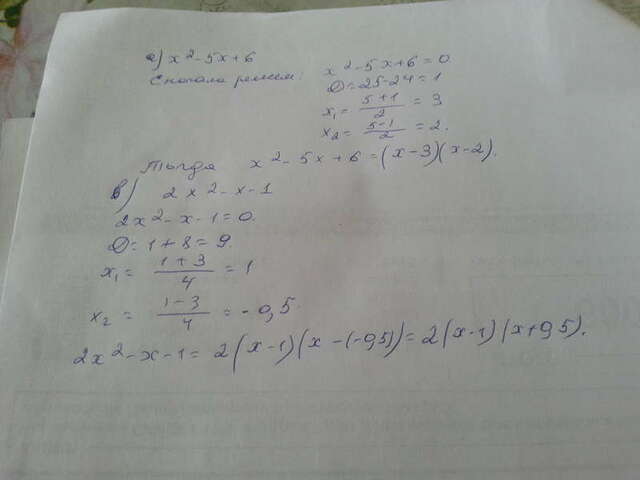 а) x² - 5x + 6
Сначала решим: x² - 5x + 6 = 0.
D = 25 - 24 = 1
x₁ = (5+1)/2 = 3
x₂ = (5-1)/2 = 2.
Тогда x² - 5x + 6 = (x - 3)(x - 2).
в) 2x² - x - 1
2x² - x - 1 = 0.
D = 1 + 8 = 9.
x₁ = (1+3)/4 = 1
x₂ = (1-3)/4 = -0,5.
2x² - x - 1 = 2(x - 1)(x - (-0,5)) = 2(x - 1)(x + 0,5).